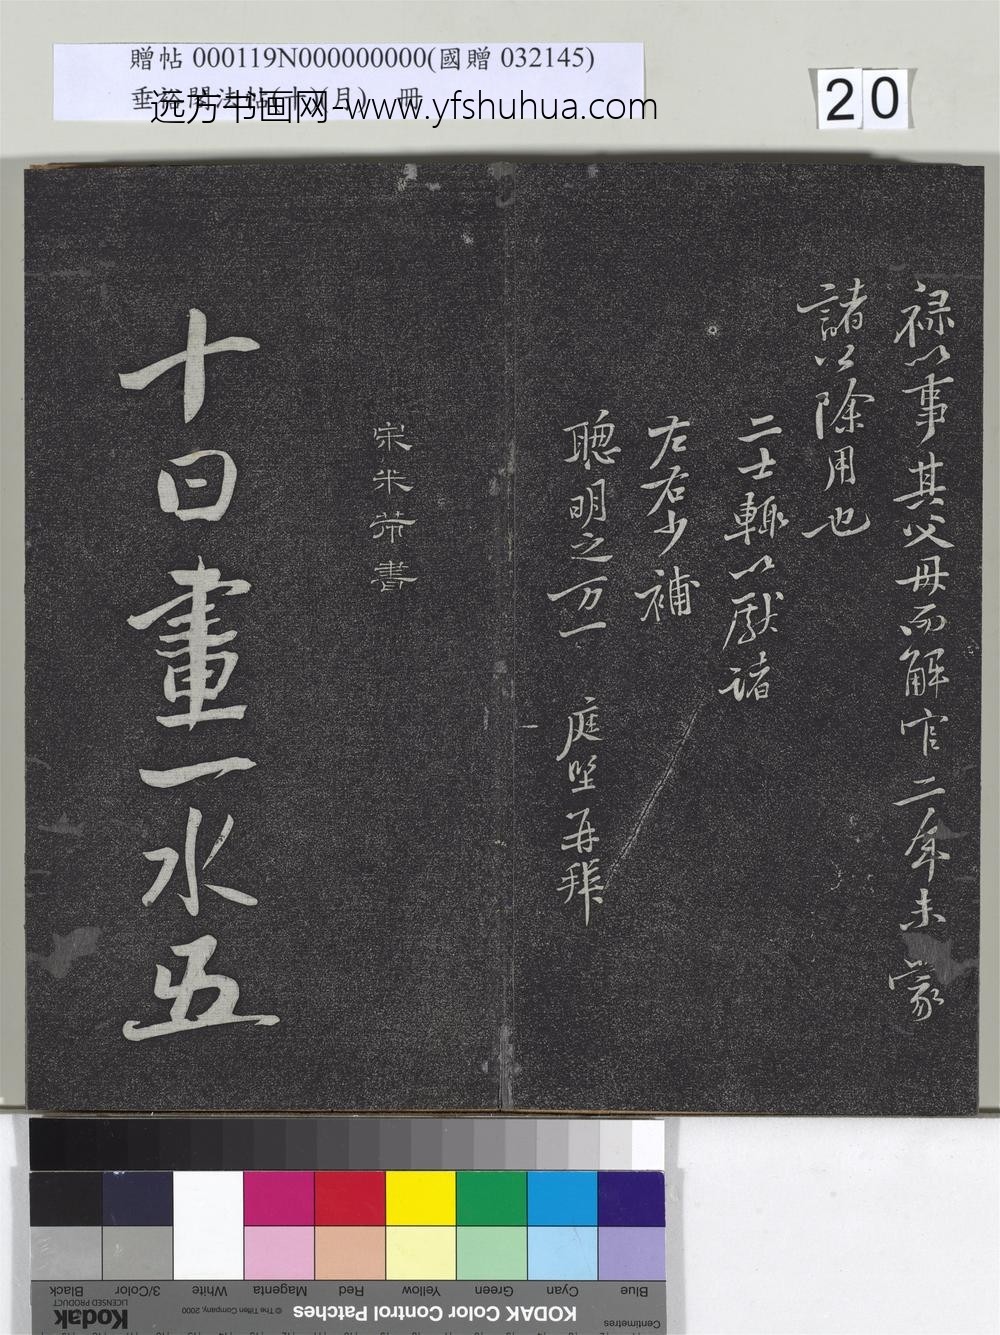 贈帖 000119N000000000(國贈 032145)
远方书画网-www.yfshuhua.com
20
禄以事其父母而解官二年未蒙
諸以除用也
二士輙以獻諸
左右少補
聰明之万一 庭坚再拜
宋米芾書
十日畫一水五
Blue
Cyan
Green
Yellow
Red
Magenta
White
3/Color
Black
Centimetres
KODAK Color Control Patches
© The Tiffen Company, 2000
Kodak
LICENSED PRODUCT